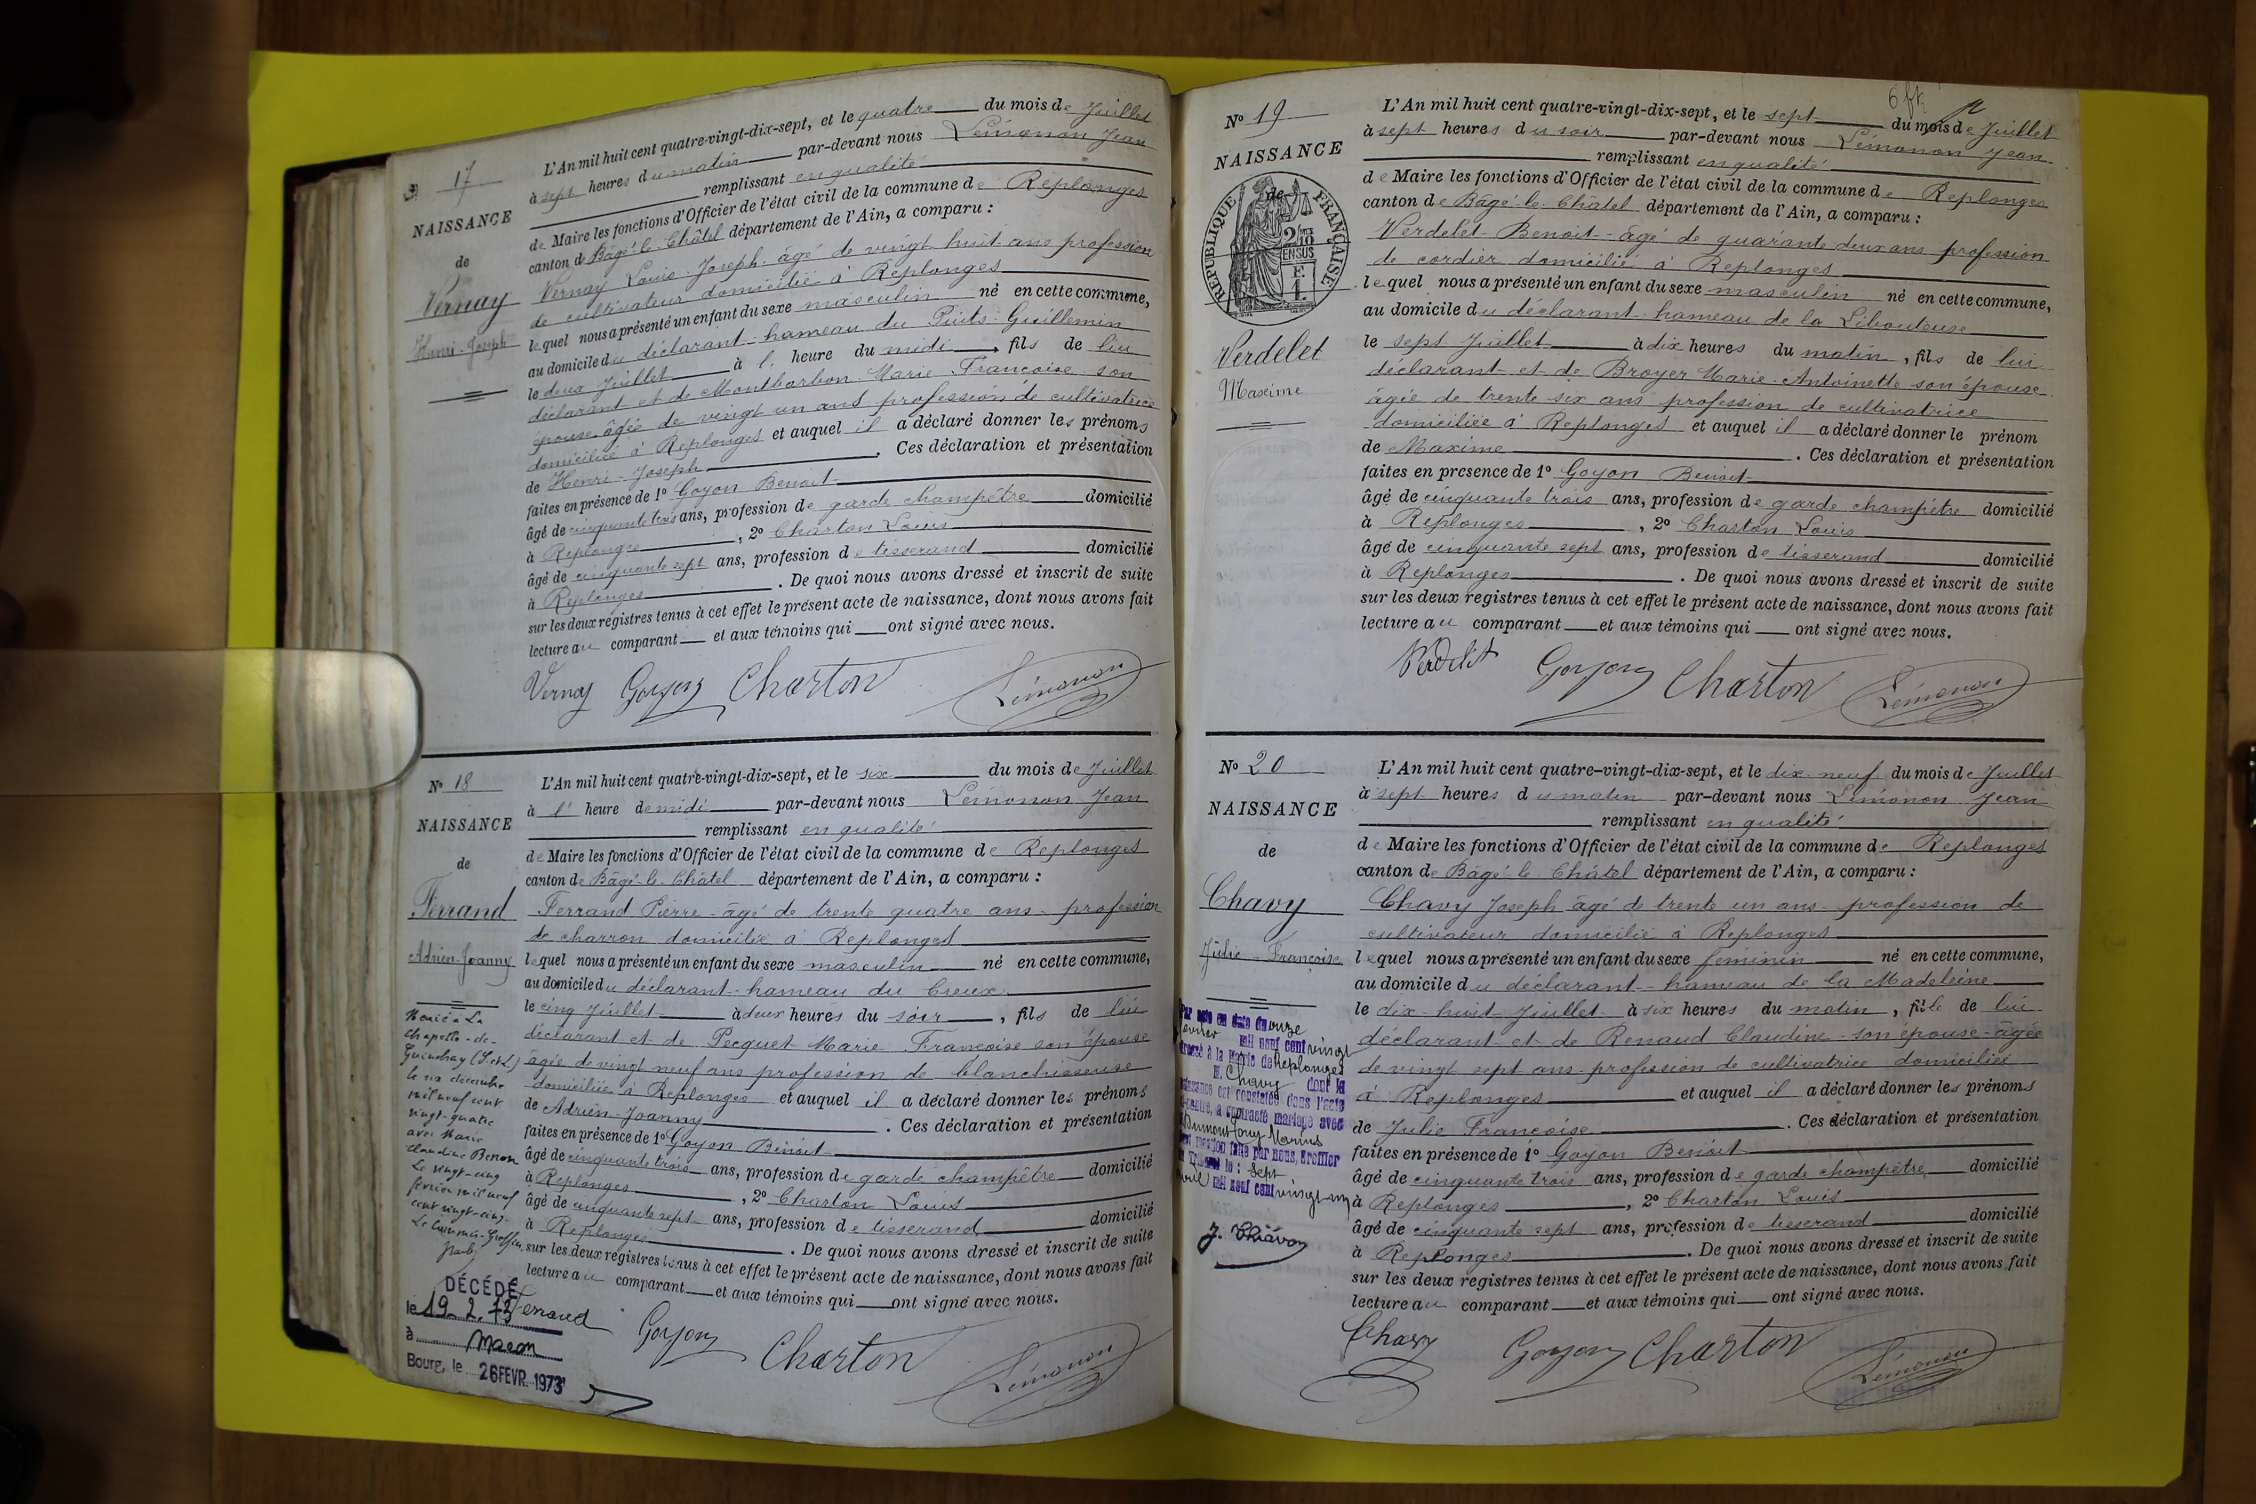 17
NAISSANCE
de
Vernay
Henri-Joseph
L'An mil huit cent quatre-vingt-dix-sept, et le quatre du mois de Juillet
à sept heures du matin par-devant nous Lémonon Jean
remplissant en qualité
de Maire les fonctions d'Officier de l'état civil de la commune de Replonges
canton de Bâgé-le-Châtel département de l'Ain, a comparu :
Vernay Louis-Joseph-âgé de vingt huit ans profession
de cultivateur domicilié à Replonges
lequel nous a présenté un enfant du sexe masculin né en cette commune,
au domicile du déclarant-hameau du Puits-Guillemin
le deux Juillet à l' heure du midi, fils de lui
déclarant et de Montbarbon Marie Françoise son
épouse âgée de vingt un ans profession de cultivatrice
domiciliée à Replonges et auquel il a déclaré donner les prénoms
de Henri-Joseph. Ces déclaration et présentation
faites en présence de 1º Goyon Benoit
âgé de cinquante trois ans, profession de garde champêtre domicilié
à Replonges, 2º Charton Louis
âgé de cinquante sept ans, profession de tisserand domicilié
à Replonges. De quoi nous avons dressé et inscrit de suite
sur les deux registres tenus à cet effet le présent acte de naissance, dont nous avons fait
lecture au comparant et aux témoins qui ont signé avec nous.
Vernay Goyon Charton Lémonon
Nº 18
NAISSANCE
de
Ferrand
Adrien-Joanny
Marié à La
Chapelle-de-
Guinchay (S.et L.)
le six décembre
mil neuf cent
vingt-quatre
avec Marie
Claudine Benon
Le vingt-cinq
février mil neuf
cent vingt-cinq.
Le Commis-Greffier
DÉCÉDÉ
le 19.2.73
à Macon
Bourg, le 26 FEVR. 1973
L'An mil huit cent quatre-vingt-dix-sept, et le six du mois de Juillet
à l' heure de midi par-devant nous Lémonon Jean
remplissant en qualité
de Maire les fonctions d'Officier de l'état civil de la commune de Replonges
canton de Bâgé-le-Châtel département de l'Ain, a comparu :
Ferrand Pierre-âgé de trente quatre ans-profession
de charron domicilié à Replonges
lequel nous a présenté un enfant du sexe masculin né en cette commune,
au domicile du déclarant-hameau du Creux
le cinq Juillet à deux heures du soir, fils de lui
déclarant et de Pecquet Marie Françoise son épouse
âgée de vingt neuf ans profession de blanchisseuse
domiciliée à Replonges et auquel il a déclaré donner les prénoms
de Adrien-Joanny. Ces déclaration et présentation
faites en présence de 1º Goyon Benoit
âgé de cinquante trois ans, profession de garde champêtre domicilié
à Replonges, 2º Charton Louis
âgé de cinquante sept ans, profession de tisserand domicilié
à Replonges. De quoi nous avons dressé et inscrit de suite
sur les deux registres tenus à cet effet le présent acte de naissance, dont nous avons fait
lecture au comparant et aux témoins qui ont signé avec nous.
Ferrand Goyon Charton Lémonon
6 ft
Nº 19
NAISSANCE
de
RÉPUBLIQUE FRANÇAISE
2/10 EN SUS
F
1.
Verdelet
Maxime
L'An mil huit cent quatre-vingt-dix-sept, et le sept du mois de Juillet
à sept heures du soir par-devant nous Lémonon Jean
remplissant en qualité
de Maire les fonctions d'Officier de l'état civil de la commune de Replonges
canton de Bâgé-le-Châtel département de l'Ain, a comparu :
Verdelet Benoit-âgé de quarante deux ans profession
de cordier domicilié à Replonges
lequel nous a présenté un enfant du sexe masculin né en cette commune,
au domicile du déclarant-hameau de la Libouteuse
le sept Juillet à dix heures du matin, fils de lui
déclarant et de Broyer Marie-Antoinette son épouse
âgée de trente six ans profession de cultivatrice
domiciliée à Replonges et auquel il a déclaré donner le prénom
de Maxime. Ces déclaration et présentation
faites en présence de 1º Goyon Benoit
âgé de cinquante trois ans, profession de garde champêtre domicilié
à Replonges, 2º Charton Louis
âgé de cinquante sept ans, profession de tisserand domicilié
à Replonges. De quoi nous avons dressé et inscrit de suite
sur les deux registres tenus à cet effet le présent acte de naissance, dont nous avons fait
lecture au comparant et aux témoins qui ont signé avec nous.
Verdelet Goyon Charton Lémonon
Nº 20
NAISSANCE
de
Chavy
Julie-Françoise
Par acte en date du onze
février mil neuf cent vingt
dressé à la Mairie de Replonges
Chavy dont la
naissance est constatée dans l'acte
ci-contre, a contracté mariage avec
Marius
mention faite par nous, Greffier
le : sept
avril mil neuf cent vingt-un
L'An mil huit cent quatre-vingt-dix-sept, et le dix neuf du mois de Juillet
à sept heures du matin par-devant nous Lémonon Jean
remplissant en qualité
de Maire les fonctions d'Officier de l'état civil de la commune de Replonges
canton de Bâgé-le-Châtel département de l'Ain, a comparu :
Chavy Joseph âgé de trente un ans-profession de
cultivateur domicilié à Replonges
lequel nous a présenté un enfant du sexe féminin né en cette commune,
au domicile du déclarant-hameau de la Madeleine
le dix-huit Juillet à six heures du matin, fille de lui
déclarant et de Renaud Claudine-son épouse-âgée
de vingt sept ans-profession de cultivatrice domiciliée
à Replonges et auquel il a déclaré donner les prénoms
de Julie Françoise. Ces déclaration et présentation
faites en présence de 1º Goyon Benoit
âgé de cinquante trois ans, profession de garde champêtre domicilié
à Replonges, 2º Charton Louis
âgé de cinquante sept ans, profession de tisserand domicilié
à Replonges. De quoi nous avons dressé et inscrit de suite
sur les deux registres tenus à cet effet le présent acte de naissance, dont nous avons fait
lecture au comparant et aux témoins qui ont signé avec nous.
Chavy Goyon Charton Lémonon